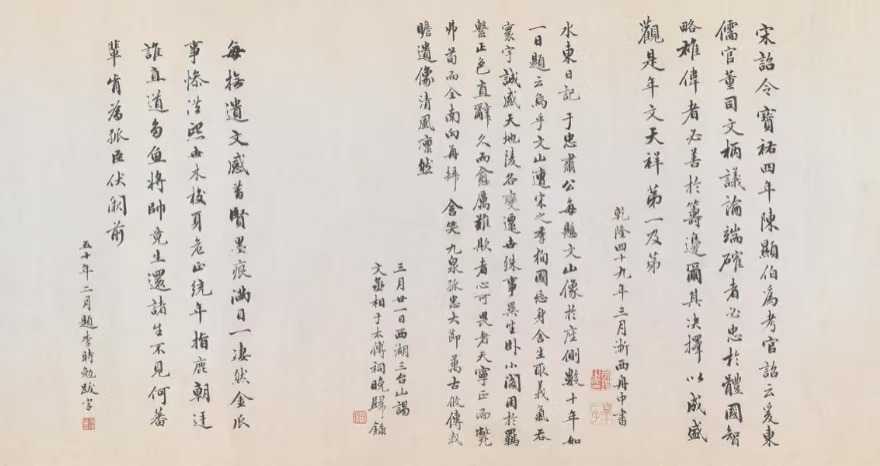 宋詔令寶祐四年陳顯伯為考官詔云爰柬
儒官董司文柄議論端確者必忠於體國智
略雄偉者必善於籌邊爾其決擇以成盛
觀是年文天祥第一及第
乾隆四十九年三月浙西舟中書
水東日記于忠肅公每懸文山像於座側數十年如
一日題云嗚乎文山遭宋之季徇國忘身舍生取義氣吞
寰宇誠感天地陵谷變遷世殊事異坐臥小閣困於羈
繫正色直辭久而愈厲難欺者心可畏者天寧正而斃
弗苟而全南向再拜含笑九泉孤忠大節萬古攸傳我
瞻遺像清風凜然
三月廿一日西湖三台山謁
文丞相于太傅祠晚歸錄
每披遺文感昔賢墨痕滿目一凄然金瓜
事慘洪熙世木校身危正統年指鹿朝廷
誰直道魚將帥竟生還諸生不見何蕃
輩肯為孤臣伏闕前
五十年二月題李時勉跋字